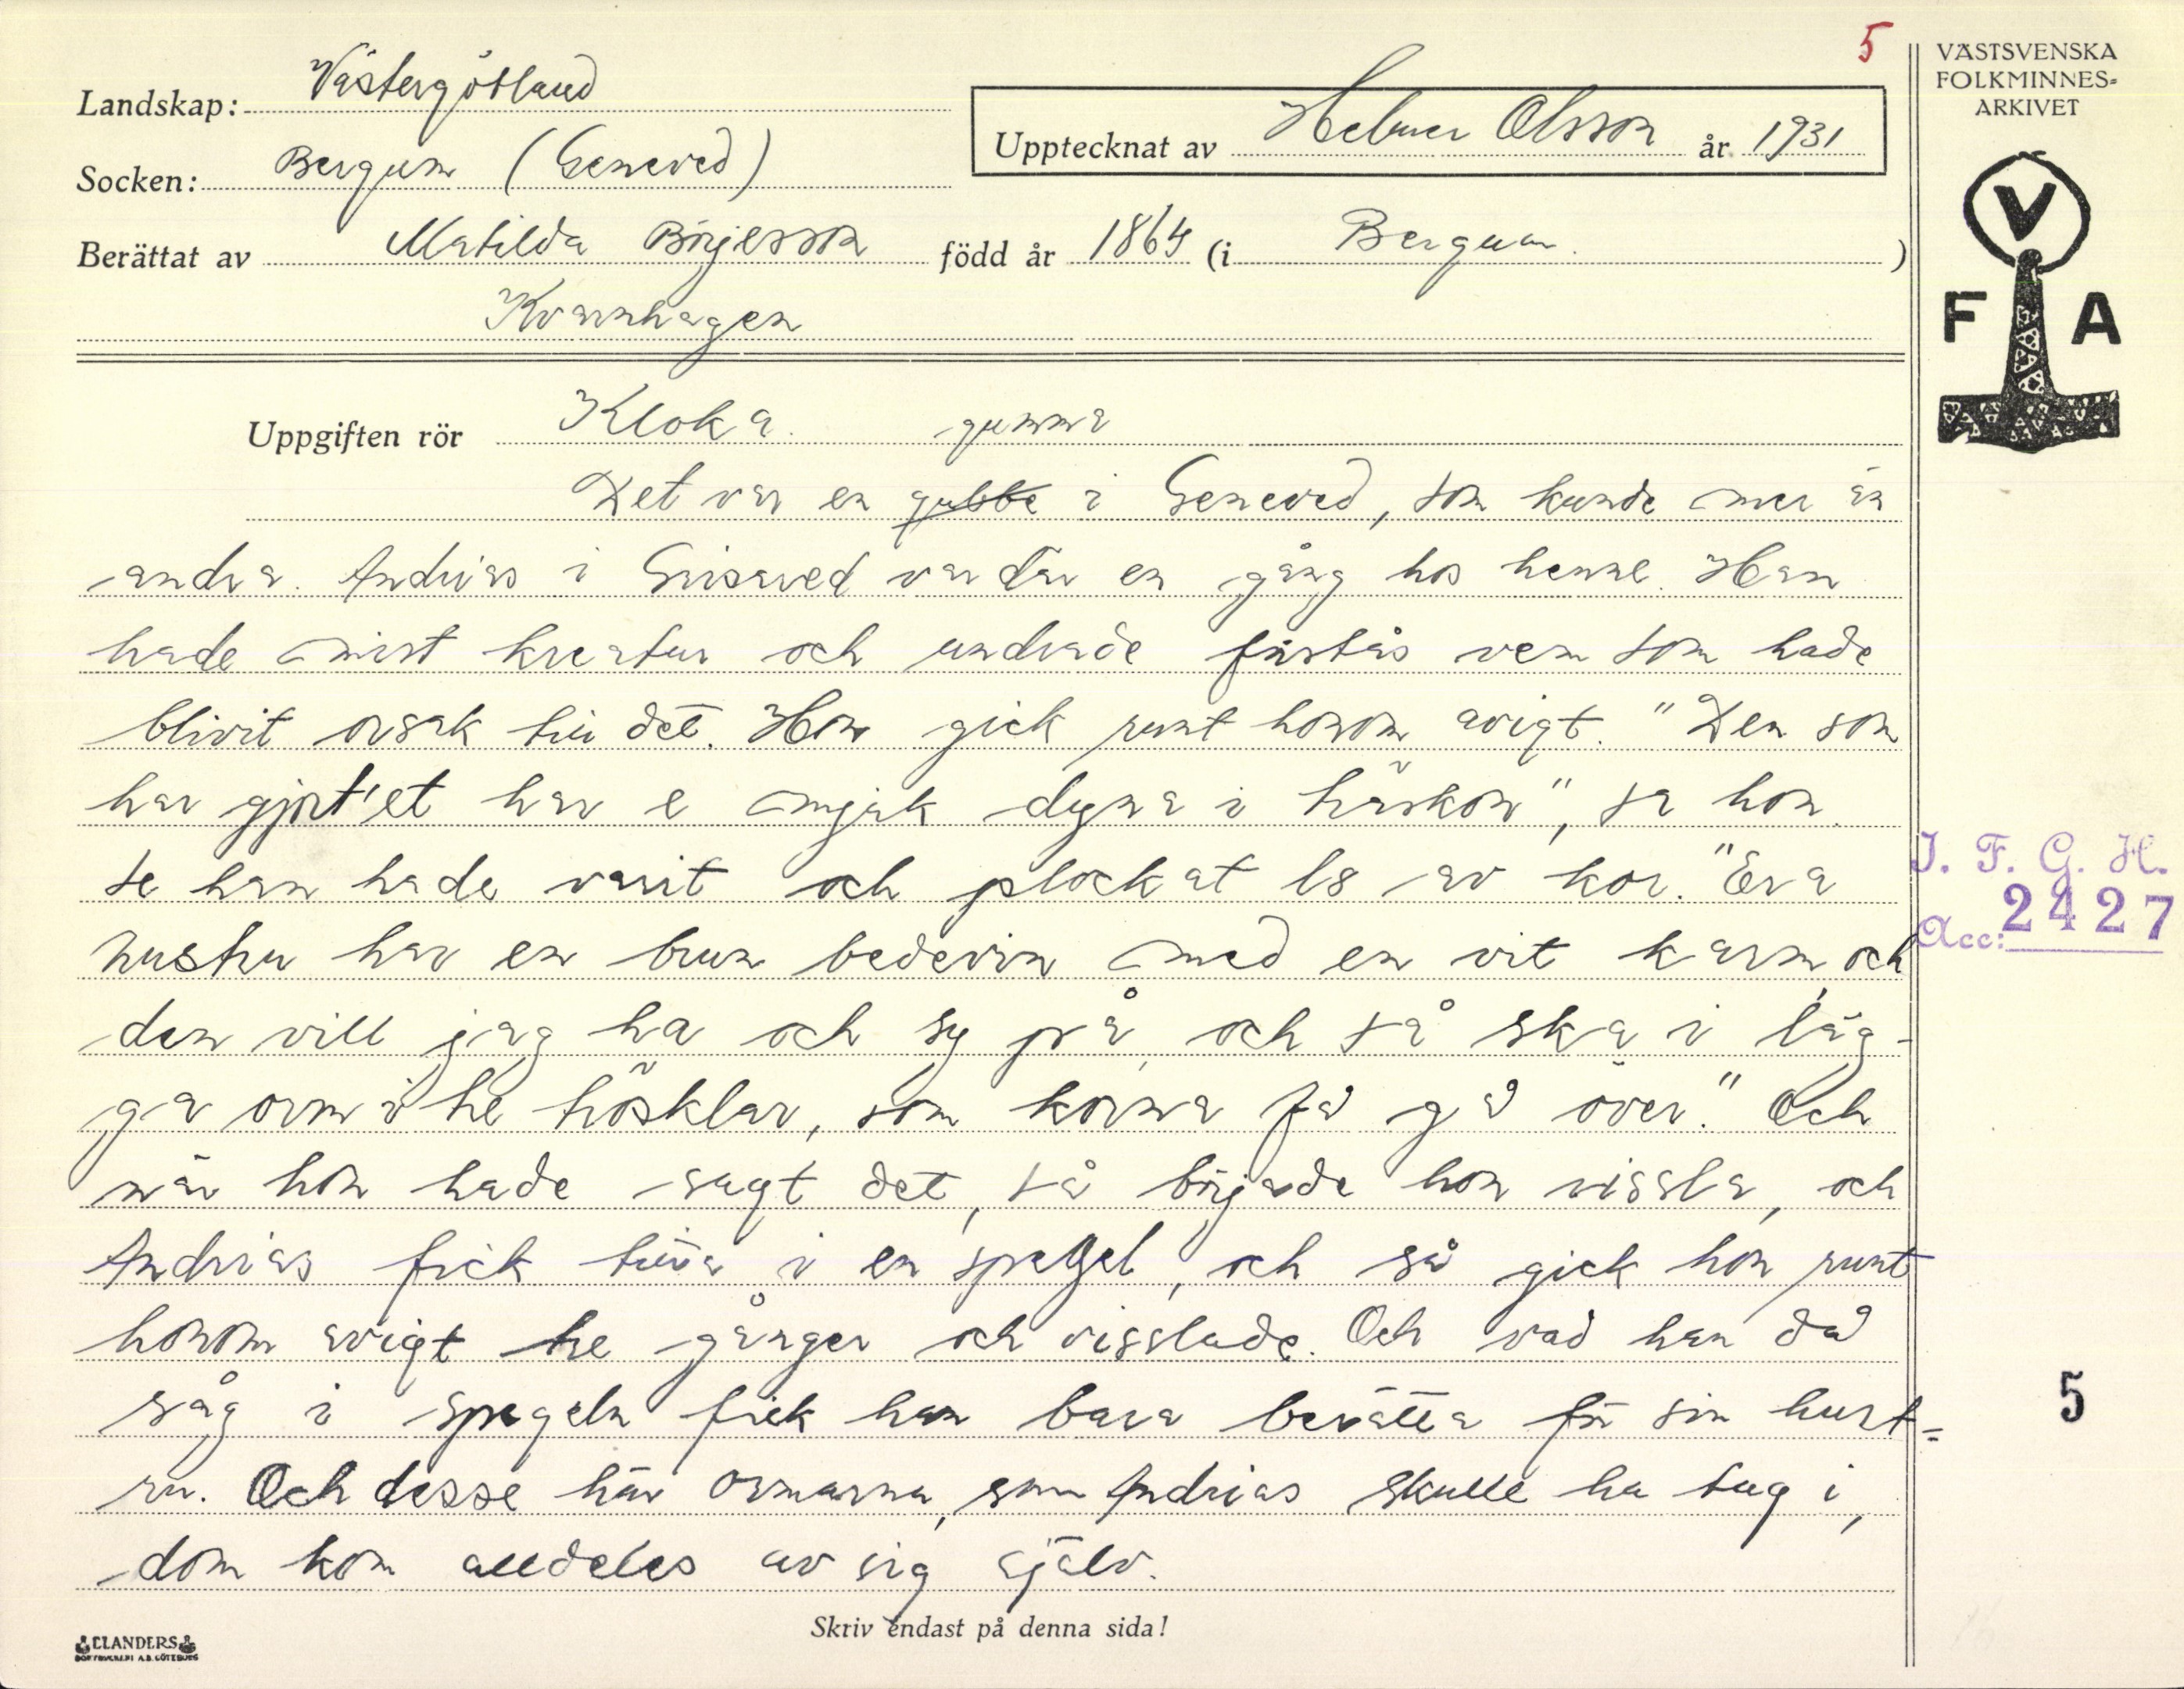 5
Landskap: Västergötland
Socken: Bergum (Genered)
Upptecknat av Helmer Olsson år 1931
Berättat av Matilda Börjesson född år 1864 (i Bergum.)
Kvarnhagen
VÄSTSVENSKA
FOLKMINNES=
ARKIVET
V
F A
Uppgiften rör Kloka gumma
Det var en gubbe i Genered, som kunde mer än
andra. Andrias i Grisared var där en gång hos henne. Han
hade mist kreatur och undrade förstås vem som hade
blivit orsak till det. Hon gick runt honom avigt. "Den som
har gjort'et har e mjuk dyna i häskon", sa hon.
Se han hade varit och plockat ls av kor. "Era
hustru har en brun bedevin med en vit karm, och
den vill jag ha och sy på, och så ska i läg-
ga orm i tre hösklar, som korna få gå över." Och
när hon hade sagt det, så började hon vissla, och
Andrias fick titta i en spegel, och så gick hon runt
honom avigt tre gånger och visslade. Och vad han då
såg i spegeln fick han bara berätta för sin hust=
ru. Och desse här ormarna, som Andrias skulle ha tag i,
dom kom alldeles av sig själv.
I. F. G. H.
Acc: 2427
5
Skriv endast på denna sida!
ELANDERS
BOKTRYCKERI A.B. GÖTEBORG